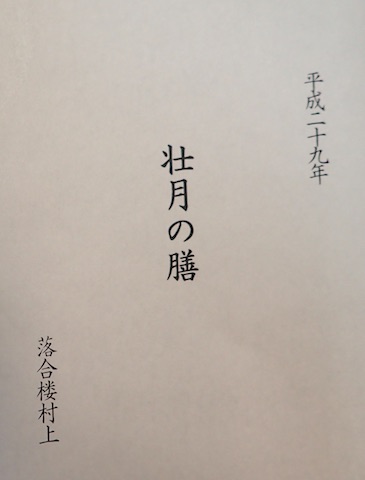 平成二十九年
壮月の膳
落合楼村上